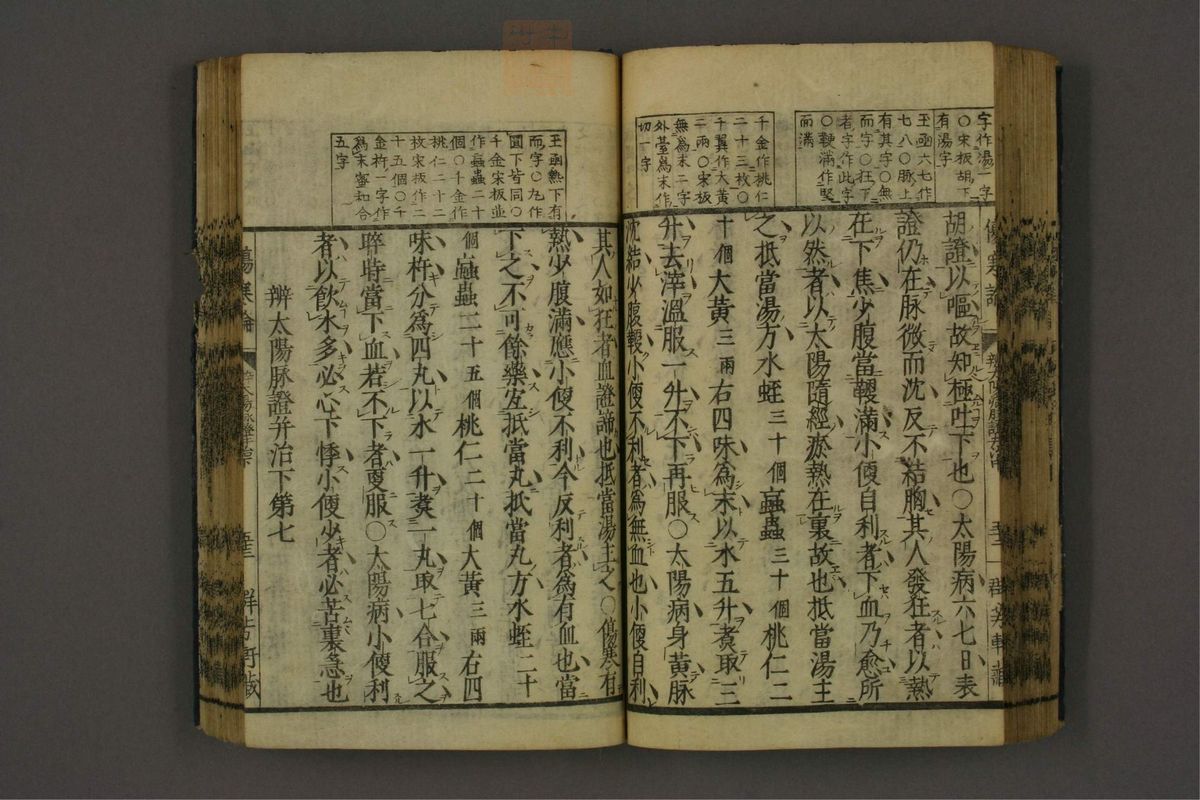 字作湯一字
○宋板胡下
有湯字
玉函六七作
七八○脉上
有其字○無
而字○狂下
者字作此字
○鞕滿作堅
而滿
千金作桃仁
二十三枚○
千翼作大黃
二兩○宋板
無爲末二字
外臺爲末作
切一字
胡證以嘔故知極吐下也○太陽病六七日表
證仍在脉微而沈反不結胸其人發狂者以熱
在下焦少腹當鞕滿小便自利者下血乃愈所
以然者以太陽隨經瘀熱在裏故也抵當湯主
之抵當湯方水蛭三十個䗪蟲三十個桃仁二
十個大黃三兩右四味爲末以水五升煑取三
升去滓溫服一升不下再服○太陽病身黃脉
沈結少腹鞕小便不利者爲無血也小便自利
玉函熱下有
而字○丸作
圓下皆同○
千金宋板並
作蝱蟲二十
個○千金作
桃仁二十二
枚宋板作二
十五個○千
金杵一字作
爲末蜜和合
五字
其人如狂者血證諦也抵當湯主之○傷寒有
熱少腹滿應小便不利今反利者爲有血也當
下之不可餘藥宜抵當丸抵當丸方水蛭二十
個䗪蟲二十五個桃仁二十個大黃三兩右四
味杵分爲四丸以水一升煑一丸取七合服之
晬時當下血若不下者更服○太陽病小便利
者以飲水多必心下悸小便少者必苦裏急也
辨太陽脉證幷治下第七
傷寒論